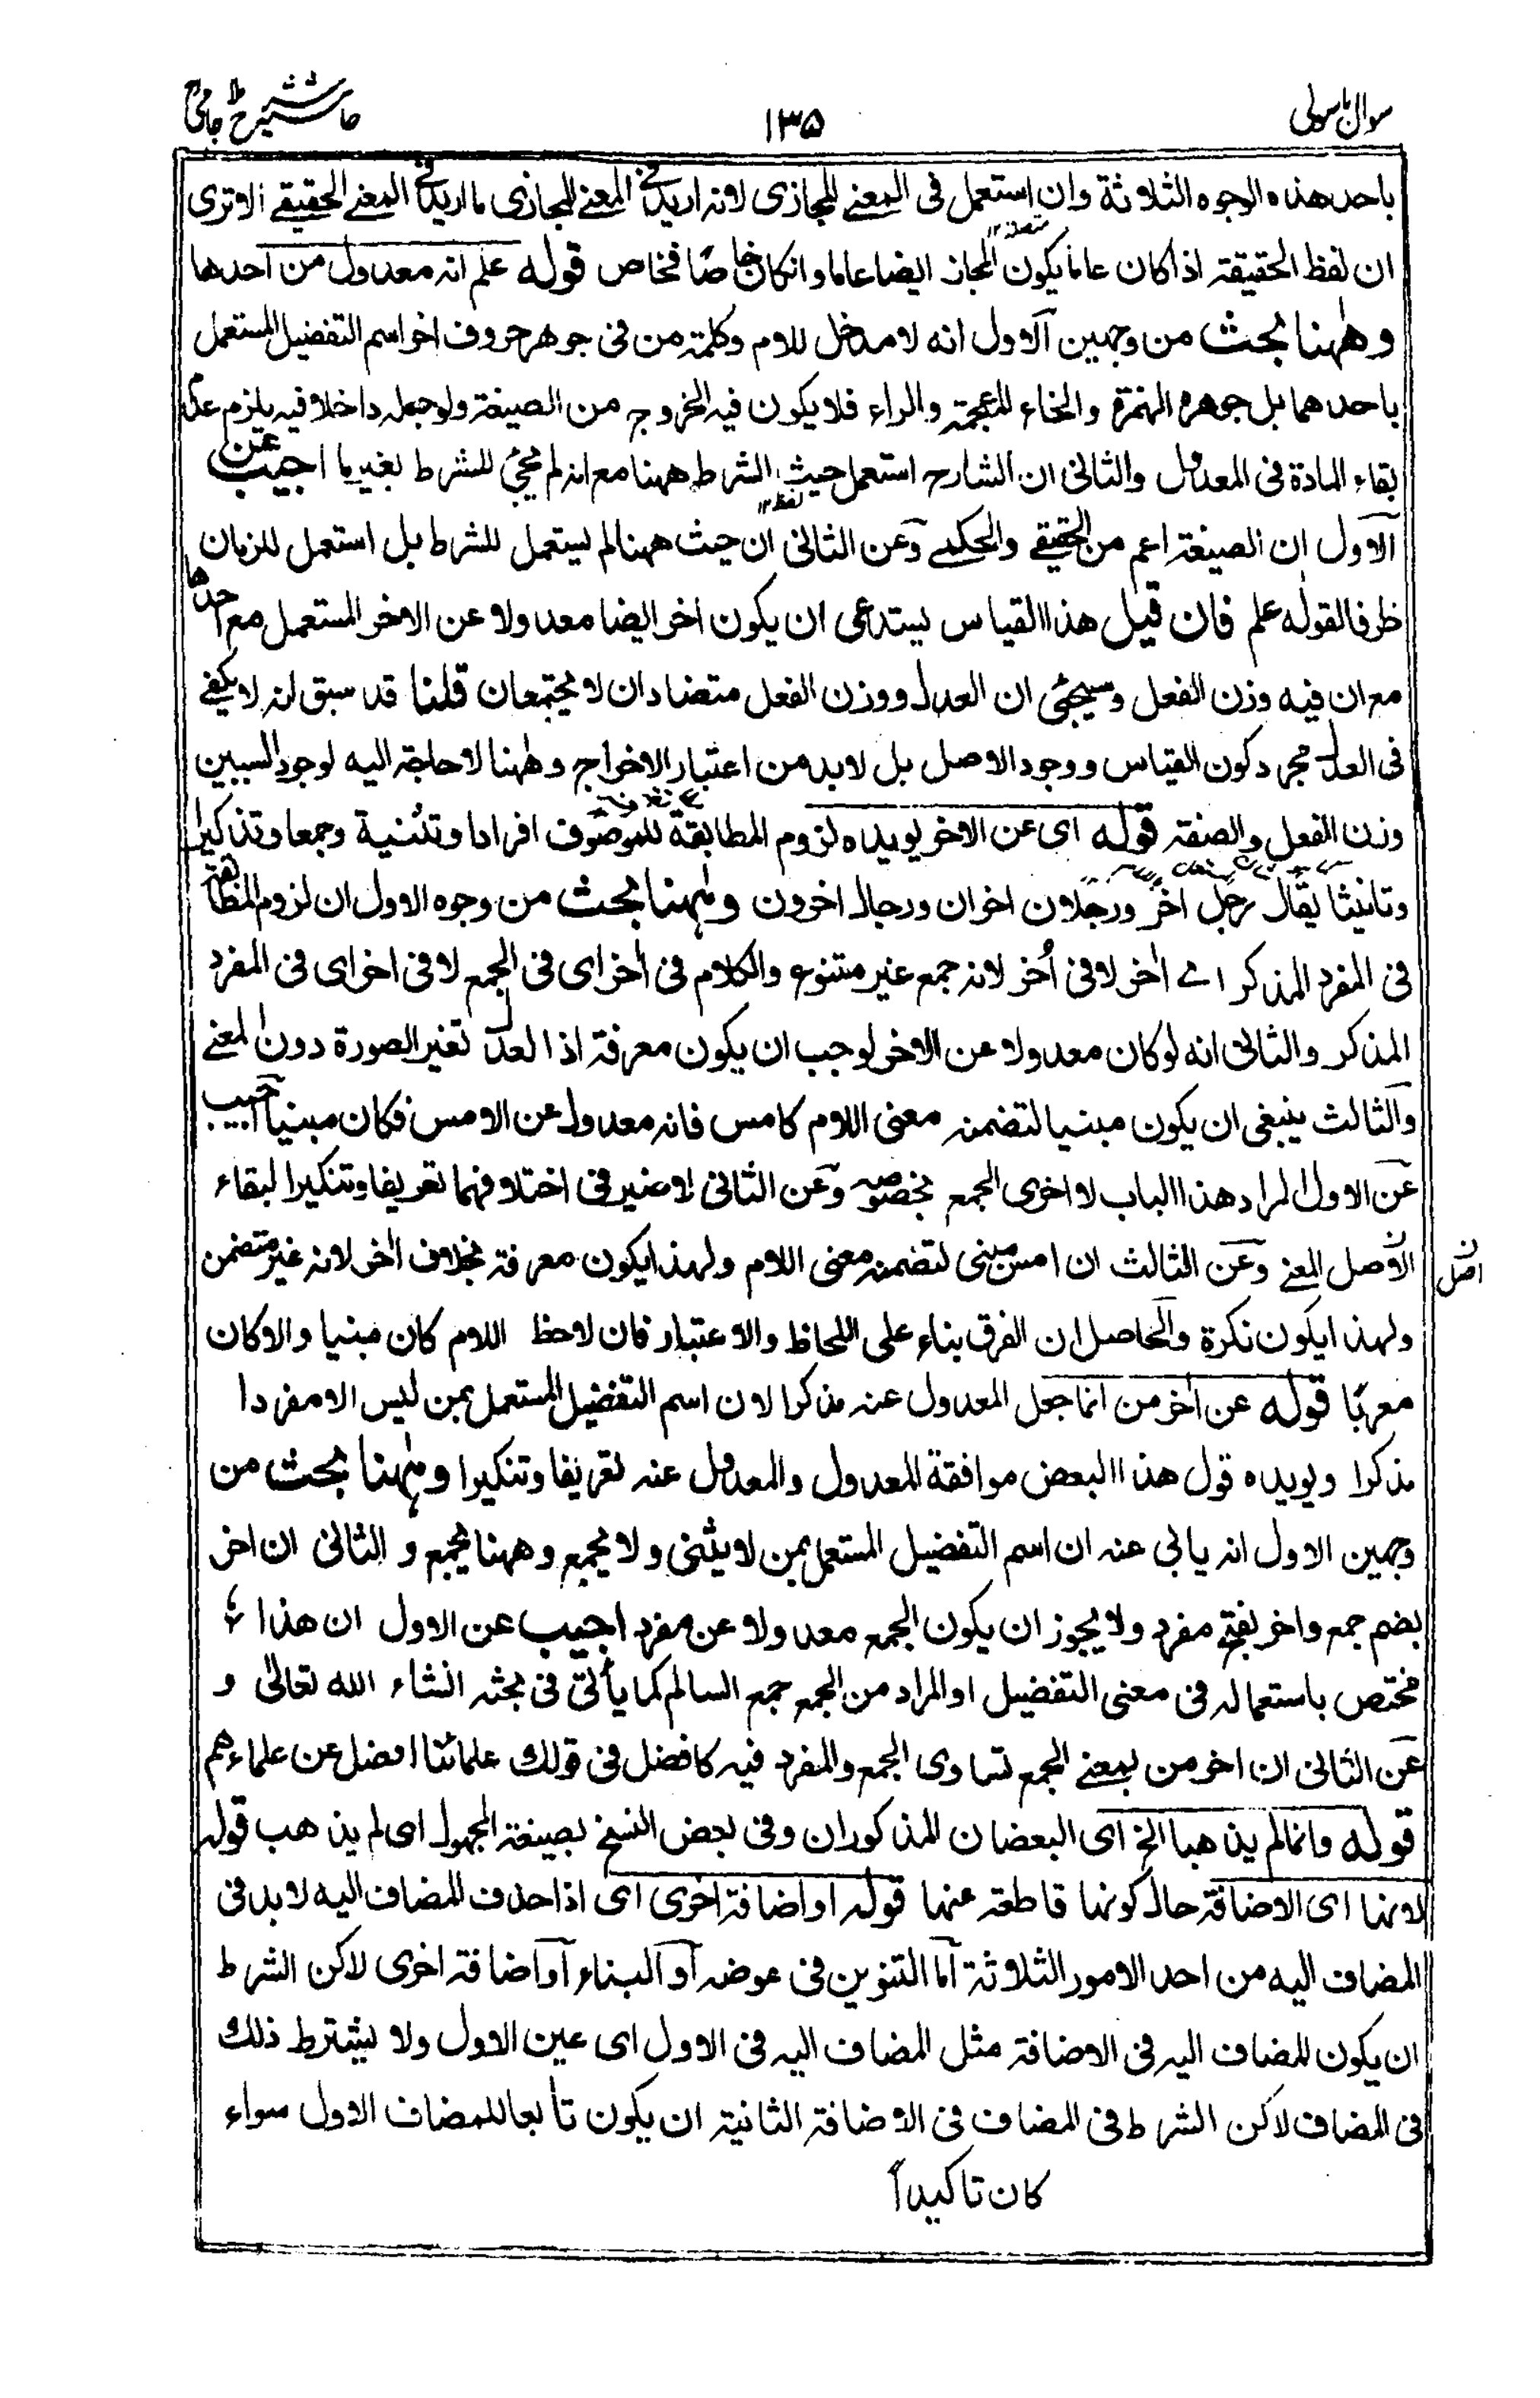 سوال باسولی
١٣٥
حاشیہ شرح جامی
باحد هذه الوجوه الثلاثة وان استعمل فى المعنے المجازى لانه اريد فى المعنے المجازى ما اريد فى المعنے الحقيقے الاترى
ان لفظ الحقيقة اذا كان عاما يكون المجاز ايضا عاما وانكان خاصا فخاص قوله علم انه معدول من احدها
وههنا بحث من وجهين الاول انه لا مدخل للام وكلمة من فى جوهر حروف اخر اسم التفضيل المستعمل
باحدهما بل جوهره الهمزة والخاء المعجمة والراء فلا يكون فيه الخروج من الصيغة ولو جعله داخلا فيه يلزم عدم
بقاء المادة فى المعدول والثانى ان الشارح استعمل حيث الشرط ههنا مع انه لم يجئ للشرط بغير ما اجيب عن
الاول ان الصيغة اعم من الحقيقے والحكمے وعن الثانى ان لفظ حيث ههنا لم يستعمل للشرط بل استعمل للزمان
ظرفا لقوله علم فان قيل هذا القياس يستدعى ان يكون اخر ايضا معدولا عن الاخر المستعمل مع احدها
مع ان فيه وزن الفعل وسيجئى ان العدل ووزن الفعل متضادان لا يجتمعان قلنا قد سبق انه لا يكفے
فى العدل مجرد كون القياس ووجود الاصل بل لابد من اعتبار الاخراج وههنا لا حاجة اليه لوجود السببين
وزن الفعل والصفة قوله اى عن الاخر يويده لزوم المطابقة للموصوف افرادا وتثنية وجمعا وتذكيرا
وتانيثا يقال رجل اخر ورجلان اخران ورجال اخرون وههنا بحث من وجوه الاول ان لزوم المطابقة
فى المفرد المذكر اے اخر لا فى أخر لانه جمع غير متنوع والكلام فى أخر اى فى الجمع لا فى اخر اى فى المفرد
المذكر والثانى انه لو كان معدولا عن الاخر لوجب ان يكون معرفة اذ العدل تغير الصورة دون المعنے
والثالث ينبغى ان يكون مبنيا لتضمنه معنى اللام كامس فانه معدول عن الامس فكان مبنيا اجيب
عن الاول المراد هذا الباب لا اخرى الجمع بخصوصه وعن الثانى لا ضير فى اختلافهما تعريفا وتنكيرا لبقاء
الاصل المعنے وعن الثالث ان امس مبنى لتضمنه معنى اللام ولهذا يكون معرفة بخلاف اخر لانه غير متضمن
اصل
ولهذا يكون نكرة والحاصل ان الفرق بناء على اللحاظ والاعتبار فان لاحظ اللام كان مبنيا والا كان
معربا قوله عن اخر من انما جعل المعدول عنه مذكرا لان اسم التفضيل المستعمل بمن ليس الا مفردا
مذكرا ويويده قول هذا البعض موافقة المعدول والمعدول عنه تعريفا وتنكيرا وههنا بحث من
وجهين الاول انه يابى عنه ان اسم التفضيل المستعمل بمن لا يثنى ولا يجمع وههنا يجمع و الثانى ان اخر
بضم جمع واخر بفتح مفرد ولا يجوز ان يكون الجمع معدولا عن مفرد اجيب عن الاول ان هذا
مختص باستعماله فى معنى التفضيل او المراد من الجمع جمع السالم كما يأتى فى بحثه انشاء الله تعالى و
عن الثانى ان اخر من بمعنے الجمع تساوى الجمع والمفرد فيه كافضل فى قولك علمائنا افضل عن علماءهم
قوله وانما لم يذهبا الخ اى البعضان المذكوران وفى بعض النسخ بصيغة المجهول اى لم يذهب قوله
لانها اى الاضافة حال كونها قاطعة عنها قوله او اضافة اخرى اى اذا حذف المضاف اليه لا بد فى
المضاف اليه من احد الامور الثلاثة اما التنوين فى عوضه او البناء او اضافة اخرى لاكن الشرط
ان يكون المضاف اليه فى الاضافة مثل المضاف اليه فى الاول اى عين الاول ولا يشترط ذلك
فى المضاف لاكن الشرط فى المضاف فى الاضافة الثانية ان يكون تابعا للمضاف الاول سواء
كان تاكيدا